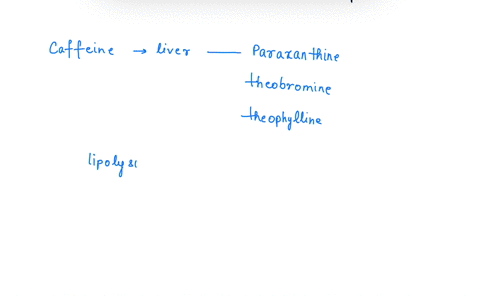 Caffeine → liver —— Paraxanthine
theobromine
theophylline
lipolysi